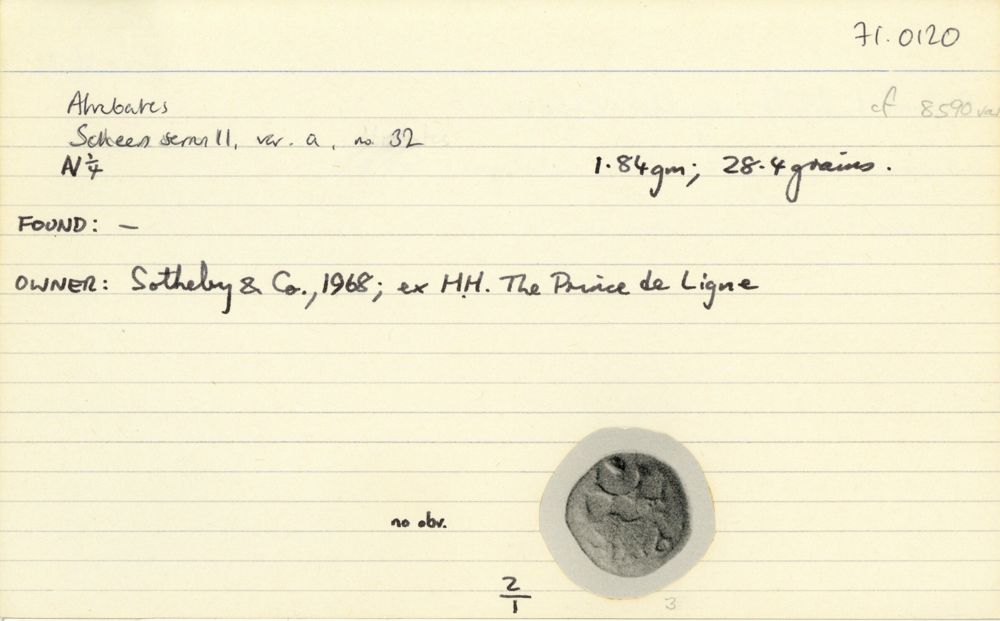 71.0120
Atrebates
cf 8590 var
Scheers series 11, var. a, no. 32
N ¼
1.84gm; 28.4 grains.
FOUND: —
OWNER: Sotheby & Co., 1968; ex H.H. The Prince de Ligne
no obv.
2/1
3